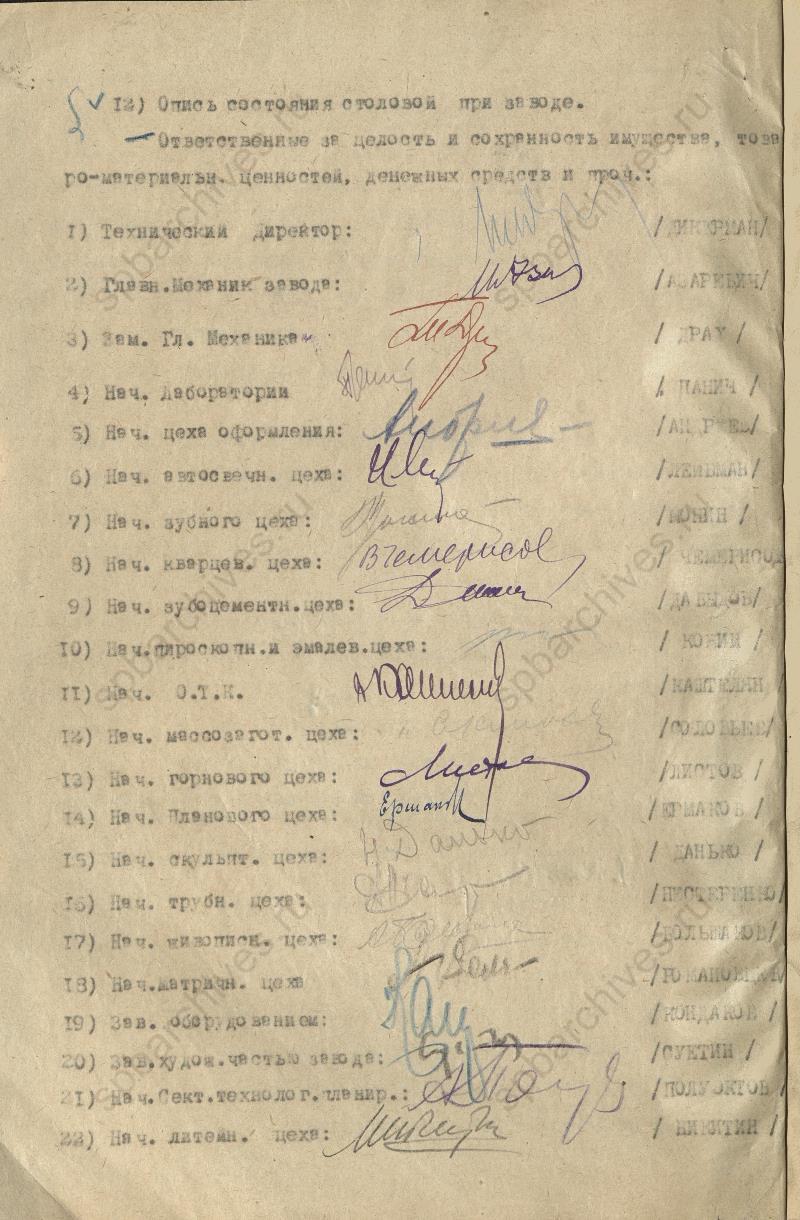 12) Опись состояния столовой при заводе.
Ответственные за целость и сохранность имущества, това
ро-материальн. ценностей, денежных средств и проч.:
1) Технический Директор: /ДИКЕРМАН/
2) Главн.Механик завода: /АЗАРЕВИЧ/
3) Зам. Гл. Механика / ДРАХ /
4) Нач. Лаборатории / ПАНИЧ /
5) Нач. цеха оформления: /АНДРЕЕВ/
6) Нач. автосвечн. цеха: /ЛЕЙБМАН/
7) Нач. зубного цеха:
8) Нач. кварцев. цеха: В Чемерисов / ЧЕМЕРИСОВ
9) Нач. зубоцементн.цеха: /ДАВЫДОВ/
10) Нач.пироскопн.и эмалев.цеха:
11) Нач. О.Т.К. /КАШТЕЛЯН /
12) Нач. массозагот. цеха: /СОЛОВЬЕВ/
13) Нач. горнового цеха: Листов /ЛИСТОВ /
14) Нач. Планового цеха: Ермаков /ЕРМАКОВ /
15) Нач. скульпт. цеха: Н Данько / ДАНЬКО /
16) Нач. трубн. цеха: /НЕСТЕРЕНКО/
17) Нач. живописн. цеха: /БОЛЬШАКОВ/
18) Нач.матричн. цеха
19) Зав. оборудованием: /КОНДАКОВ /
20) Зав.худож.частью завода: /СУЕТИН /
21) Нач.Сект.технолог.планир.: /ПОЛУЭКТОВ /
22) Нач. литейн. цеха: / НИКИТИН /
spbarchives.ru